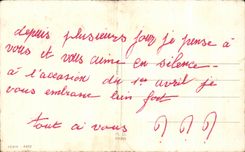 depuis plusieurs jours je pense à
vous et vous aime en silence -
à l'occasion du 1er avril je
vous embrasse bien fort
tout à vous